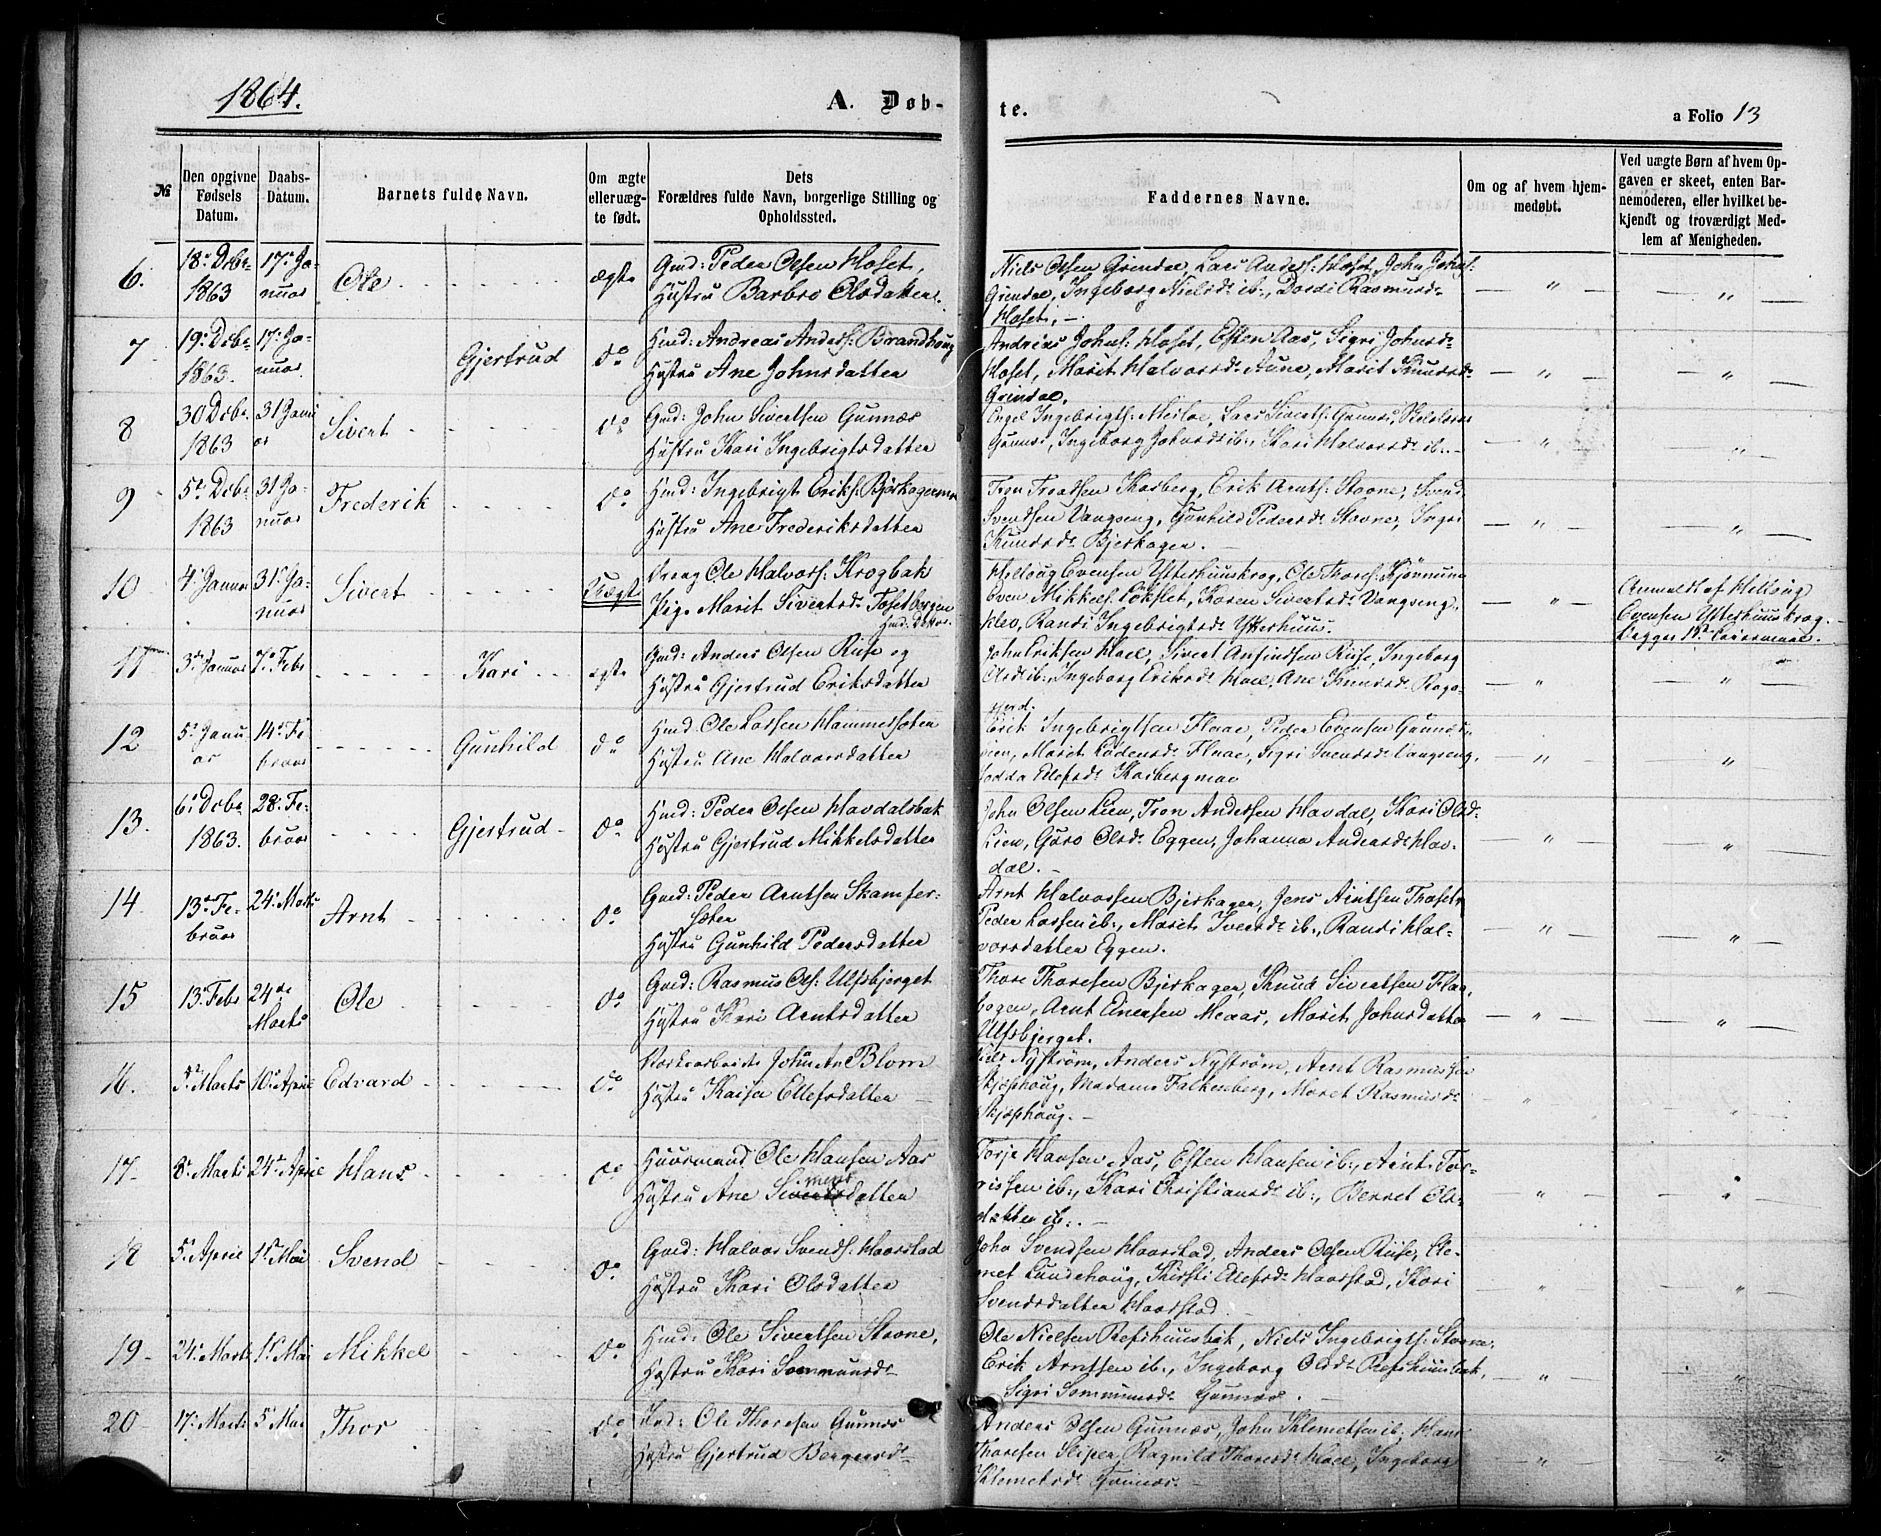 1864.
A. Døb-
te.
a Folio 13
№
Den opgivne Fødsels Datum.
Daabs-Datum.
Barnets fulde Navn.
Om ægte eller uæg-te født.
Dets Forældres fulde Navn, borgerlige Stilling og Opholdssted.
Faddernes Navne.
Om og af hvem hjem-medøbt.
Ved uægte Børn af hvem Op-gaven er skeet, enten Bar-nemoderen, eller hvilket be-kjendt og troværdigt Med-lem af Menigheden.
6. 18 Dcbr 1863 17 Ja-nuar Ole ægte
Gmd: Peder Olsen Hoset,
Hustru Barbro Olsdatter.
Niels Olsen Grindal, Lars Anders: Hoset, John Johns:
Grindal, Ingeborg Nielsd: ib:, Dordi Rasmusd:
Hoset,
7 19 Dcbr 1863. 17 Ja-nuar Gjertrud do
Hmd: Andreas Anders: Brandhoug
Hustru Ane Johnsdatter
Andreas Johns: Hoset, Esten Aas, Sigri Johnsd:
Hoset, Marit Halvorsd: Aune, Marit Knudsd:
Grindal,
8 30 Dcbr 1863 31 Janu ar Sivert do
Gmd: John Sivertsen Gunnæs
Hustru Kari Ingebrigtsdatter
Engel Ingebrigts: Mesloe, Lars Siverts: Gunnæs,
Gunnæs, Ingeborg Johnsd: ib:, Kari Halvorsd: ib:.
9 5 Dcbr 1863 31 Ja-nuar Frederik do
Hmd: Ingebrigt Eriks: Bjerkagermo
Hustru Ane Frederiksdatter
Tron Troelsen Karberg, Erik Arnts: Stovne, Svend
Svendsen Vangseng, Gunhild Pedersd: Stovne, Ingri
Knudsd: Bjerkager.
10 4 Januar 31 Ja-nuar Sivert Uægte
Ole Halvors: Krogbak
Pige Marit Sivertsd: Tosetbergen
Hmd: Datter.
Hellvig Evensen Ytterhuuskrog, Ole Thores:
Even Mikkels: Løkslet, Karen Sivertsd: Vangseng
Randi Ingebrigtsd: Ytterhuus.
Anmeldt af Hellvig
Evensen Ytterhuuskrog.
Begges 1ste Leiermaal.
11 3 Januar 7 Febr Kari ægte
Gmd: Anders Olsen Riise og
Hustru Gjertrud Eriksdatter
John Eriksen Hoel, Sivert Amundsen Riise, Ingeborg
Olsd: ib:, Ingeborg Eriksd: Hoel, Ane Knudsd:
12 5 Janu ar 14 Fe bruar Gunhild do
Hmd: Ole Larsen Hammersæter
Hustru Ane Halvorsdatter
Erik Ingebrigtsen Flaae, Peder Evensen
Marit Lodensd: Flaae, Sigri Svensd: Vangseng,
Karbergmoe
13. 6 Dcbr 1863. 28 Fe-bruar Gjertrud do
Hmd: Peder Olsen Havdalsbak
Hustru Gjertrud Mikkelsdatter
John Olsen Lien, Tron Andersen Havdal, Kari Olsd:
Lien, Guro Olsd: Eggen, Johanna Andersd: Hav-
dal.
14 13 Fe-bruar 24 Marts Arnt do
Gmd: Peder Arntsen Skamfer-
sæter
Hustru Gunhild Pedersdatter
Arnt Halvorsen Bjerkager, Jens Arntsen Thoset
Peder Larsen ib:, Marit Iversd: ib:, Randi Hal-
vorsdatter Eggen.
15 13 Febr 24de Marts Ole do
Gmd: Rasmus Ols: Ulfsbjerget
Hustru Kari Arntsdatter
Thore Thoresen Bjerkager, Knud Sivertsen Flaa
hagen, Arnt Einersen Meaas, Marit Johnsdatter
Ulfsbjerget.
16. Marts 10 April Edvard do
Værksarbeider John An Blom
Hustru Kaisa Ellefsdatter
Niels Nystrøm, Anders Nystrøm, Arnt Rasmussen
Skjephoug, Madame Falkenberg, Maret Rasmusd:
Skjephoug.
17. 8 Marts 24 April Hans do
Huusmand Ole Hansen Aas
Hustru Ane Sivertsdatter
Torje Hansen Aas, Esten Hansen ib:, Arnt Tor-
rissen ib:, Kari Christiansd: ib:, Berret Ols-
datter ib:.
18 5 April 1 Mai Svend do
Gmd: Halvor Svends: Haarstad
Hustru Kari Olsdatter
John Svendsen Haarstad, Anders Olsen Riise, Cle-
met Lundehoug, Kirsti Olefsd: Haarstad, Kari
Svendsdatter Haarstad
19 24 Marts 1 Mai Mikkel do
Hmd: Ole Sivertsen Stovne,
Hustru Kari Sommunsd:
Ole Nielsen Refshuusbak, Niels Ingebrigts: Stovne,
Erik Arntsen ib:, Ingeborg Olsd: Refshuusbak,
Sigri Sommunsd: Gunnæs.
20 17 Marts 5 Mai Thor do
Ind: Ole Thoresen Gunnæs
Hustru Gjertrud Bergersd:
Anders Olsen Gunnæs, John Klemetsen ib:,
Thoresen Sliper, Ragnild Thoresd: Hoel, Ingeborg
Klemetsd: Gunnæs.